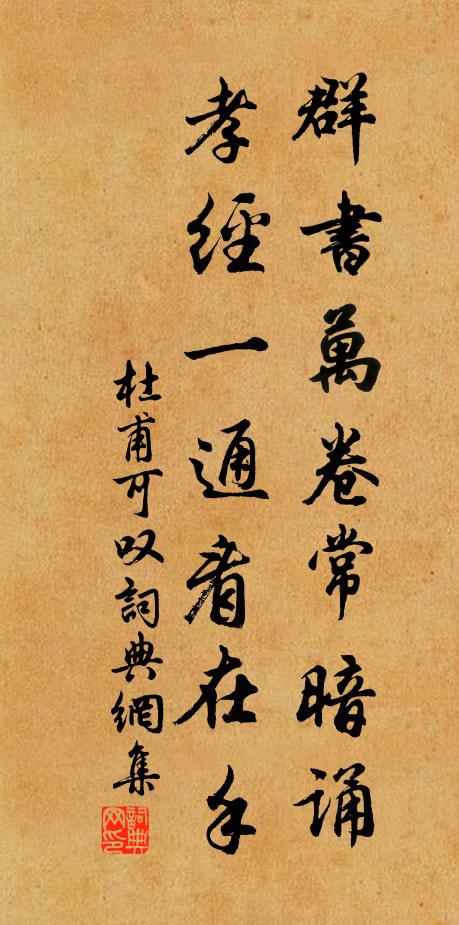 群書萬卷常暗誦
孝經一通看在手
杜甫可叹詞典網集
詞典网印